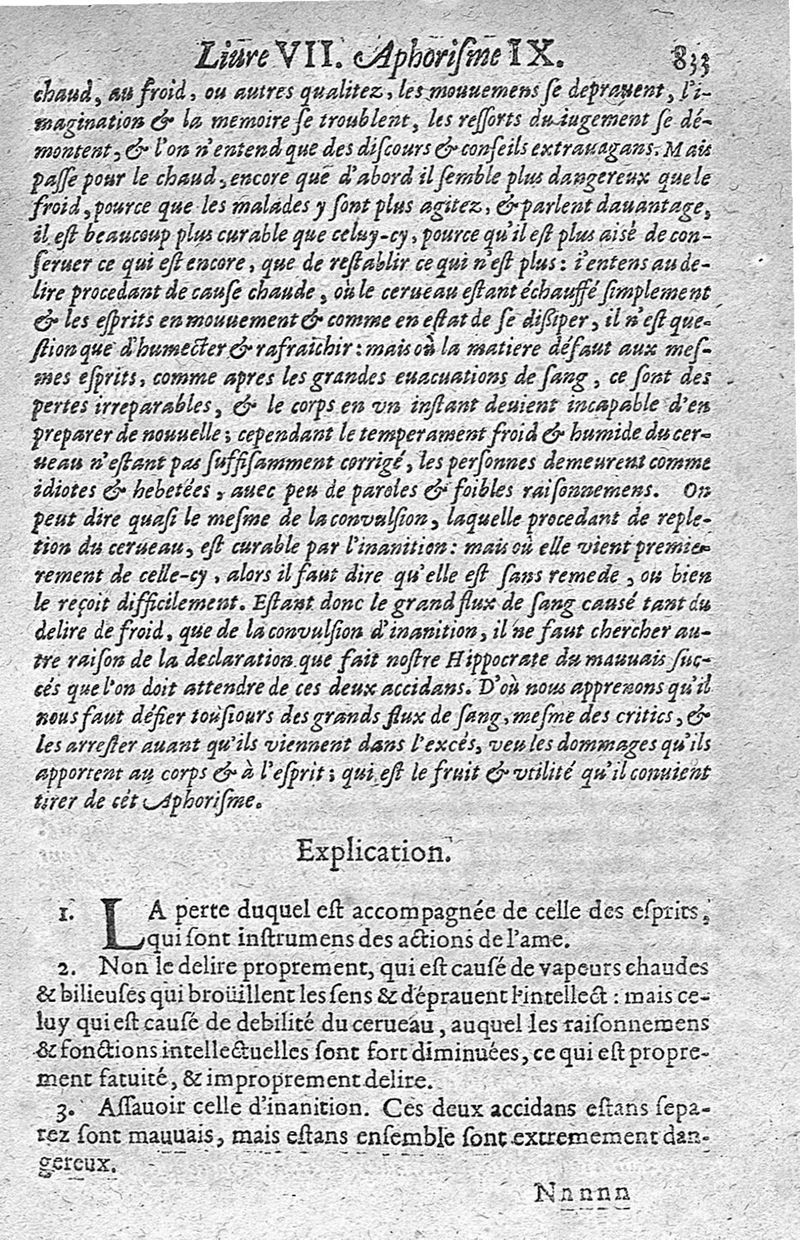 Liure VII. Aphoriſme IX. 833
chaud, au froid, ou autres qualitez, les mouuemens ſe deprauent, l'i-
magination & la memoire ſe troublent, les reſſorts du iugement ſe dé-
montent, & l'on n'entend que des diſcours & conſeils extrauagans. Mais
paſſe pour le chaud, encore que d'abord il ſemble plus dangereux que le
froid, pource que les malades y ſont plus agitez, & parlent dauantage,
il eſt beaucoup plus curable que celuy-cy, pource qu'il eſt plus aisé de con-
ſeruer ce qui eſt encore, que de reſtablir ce qui n'eſt plus: i'entens au de-
lire procedant de cauſe chaude, où le cerueau eſtant échauffé ſimplement
& les eſprits en mouuement & comme en eſtat de ſe diſſiper, il n'eſt que-
ſtion que d'humecter & rafraichir: mais où la matiere défaut aux meſ-
mes eſprits, comme apres les grandes euacuations de ſang, ce ſont des
pertes irreparables, & le corps en vn inſtant deuient incapable d'en
preparer de nouuelle; cependant le temperament froid & humide du cer-
ueau n'eſtant pas ſuffiſamment corrigé, les perſonnes demeurent comme
idiotes & hebetées, auec peu de paroles & foibles raiſonnemens. On
peut dire quaſi le meſme de la convulſion, laquelle procedant de reple-
tion du cerueau, eſt curable par l'inanition: mais où elle vient premie-
rement de celle-cy, alors il faut dire qu'elle eſt ſans remede, ou bien
le reçoit difficilement. Eſtant donc le grand flux de ſang causé tant du
delire de froid, que de la convulſion d'inanition, il ne faut chercher au-
tre raiſon de la declaration que fait noſtre Hippocrate du mauuais ſuc-
cés que l'on doit attendre de ces deux accidans. D'où nous apprenons qu'il
nous faut défier touſiours des grands flux de ſang, meſme des critics, &
les arreſter auant qu'ils viennent dans l'excés, veu les dommages qu'ils
apportent au corps & à l'eſprit; qui eſt le fruit & vtilité qu'il conuient
tirer de cét Aphoriſme.
Explication.
1. LA perte duquel eſt accompagnée de celle des eſprits,
qui ſont inſtrumens des actions de l'ame.
2. Non le delire proprement, qui eſt cauſé de vapeurs chaudes
& bilieuſes qui broüillent les ſens & déprauent l'intellect: mais ce-
luy qui eſt cauſé de debilité du cerueau, auquel les raiſonnemens
& fonctions intellectuelles ſont fort diminuées, ce qui eſt propre-
ment fatuité, & improprement delire.
3. Aſſauoir celle d'inanition. Ces deux accidans eſtans ſepa-
rez ſont mauuais, mais eſtans enſemble ſont extremement dan-
gereux.
Nnnnn